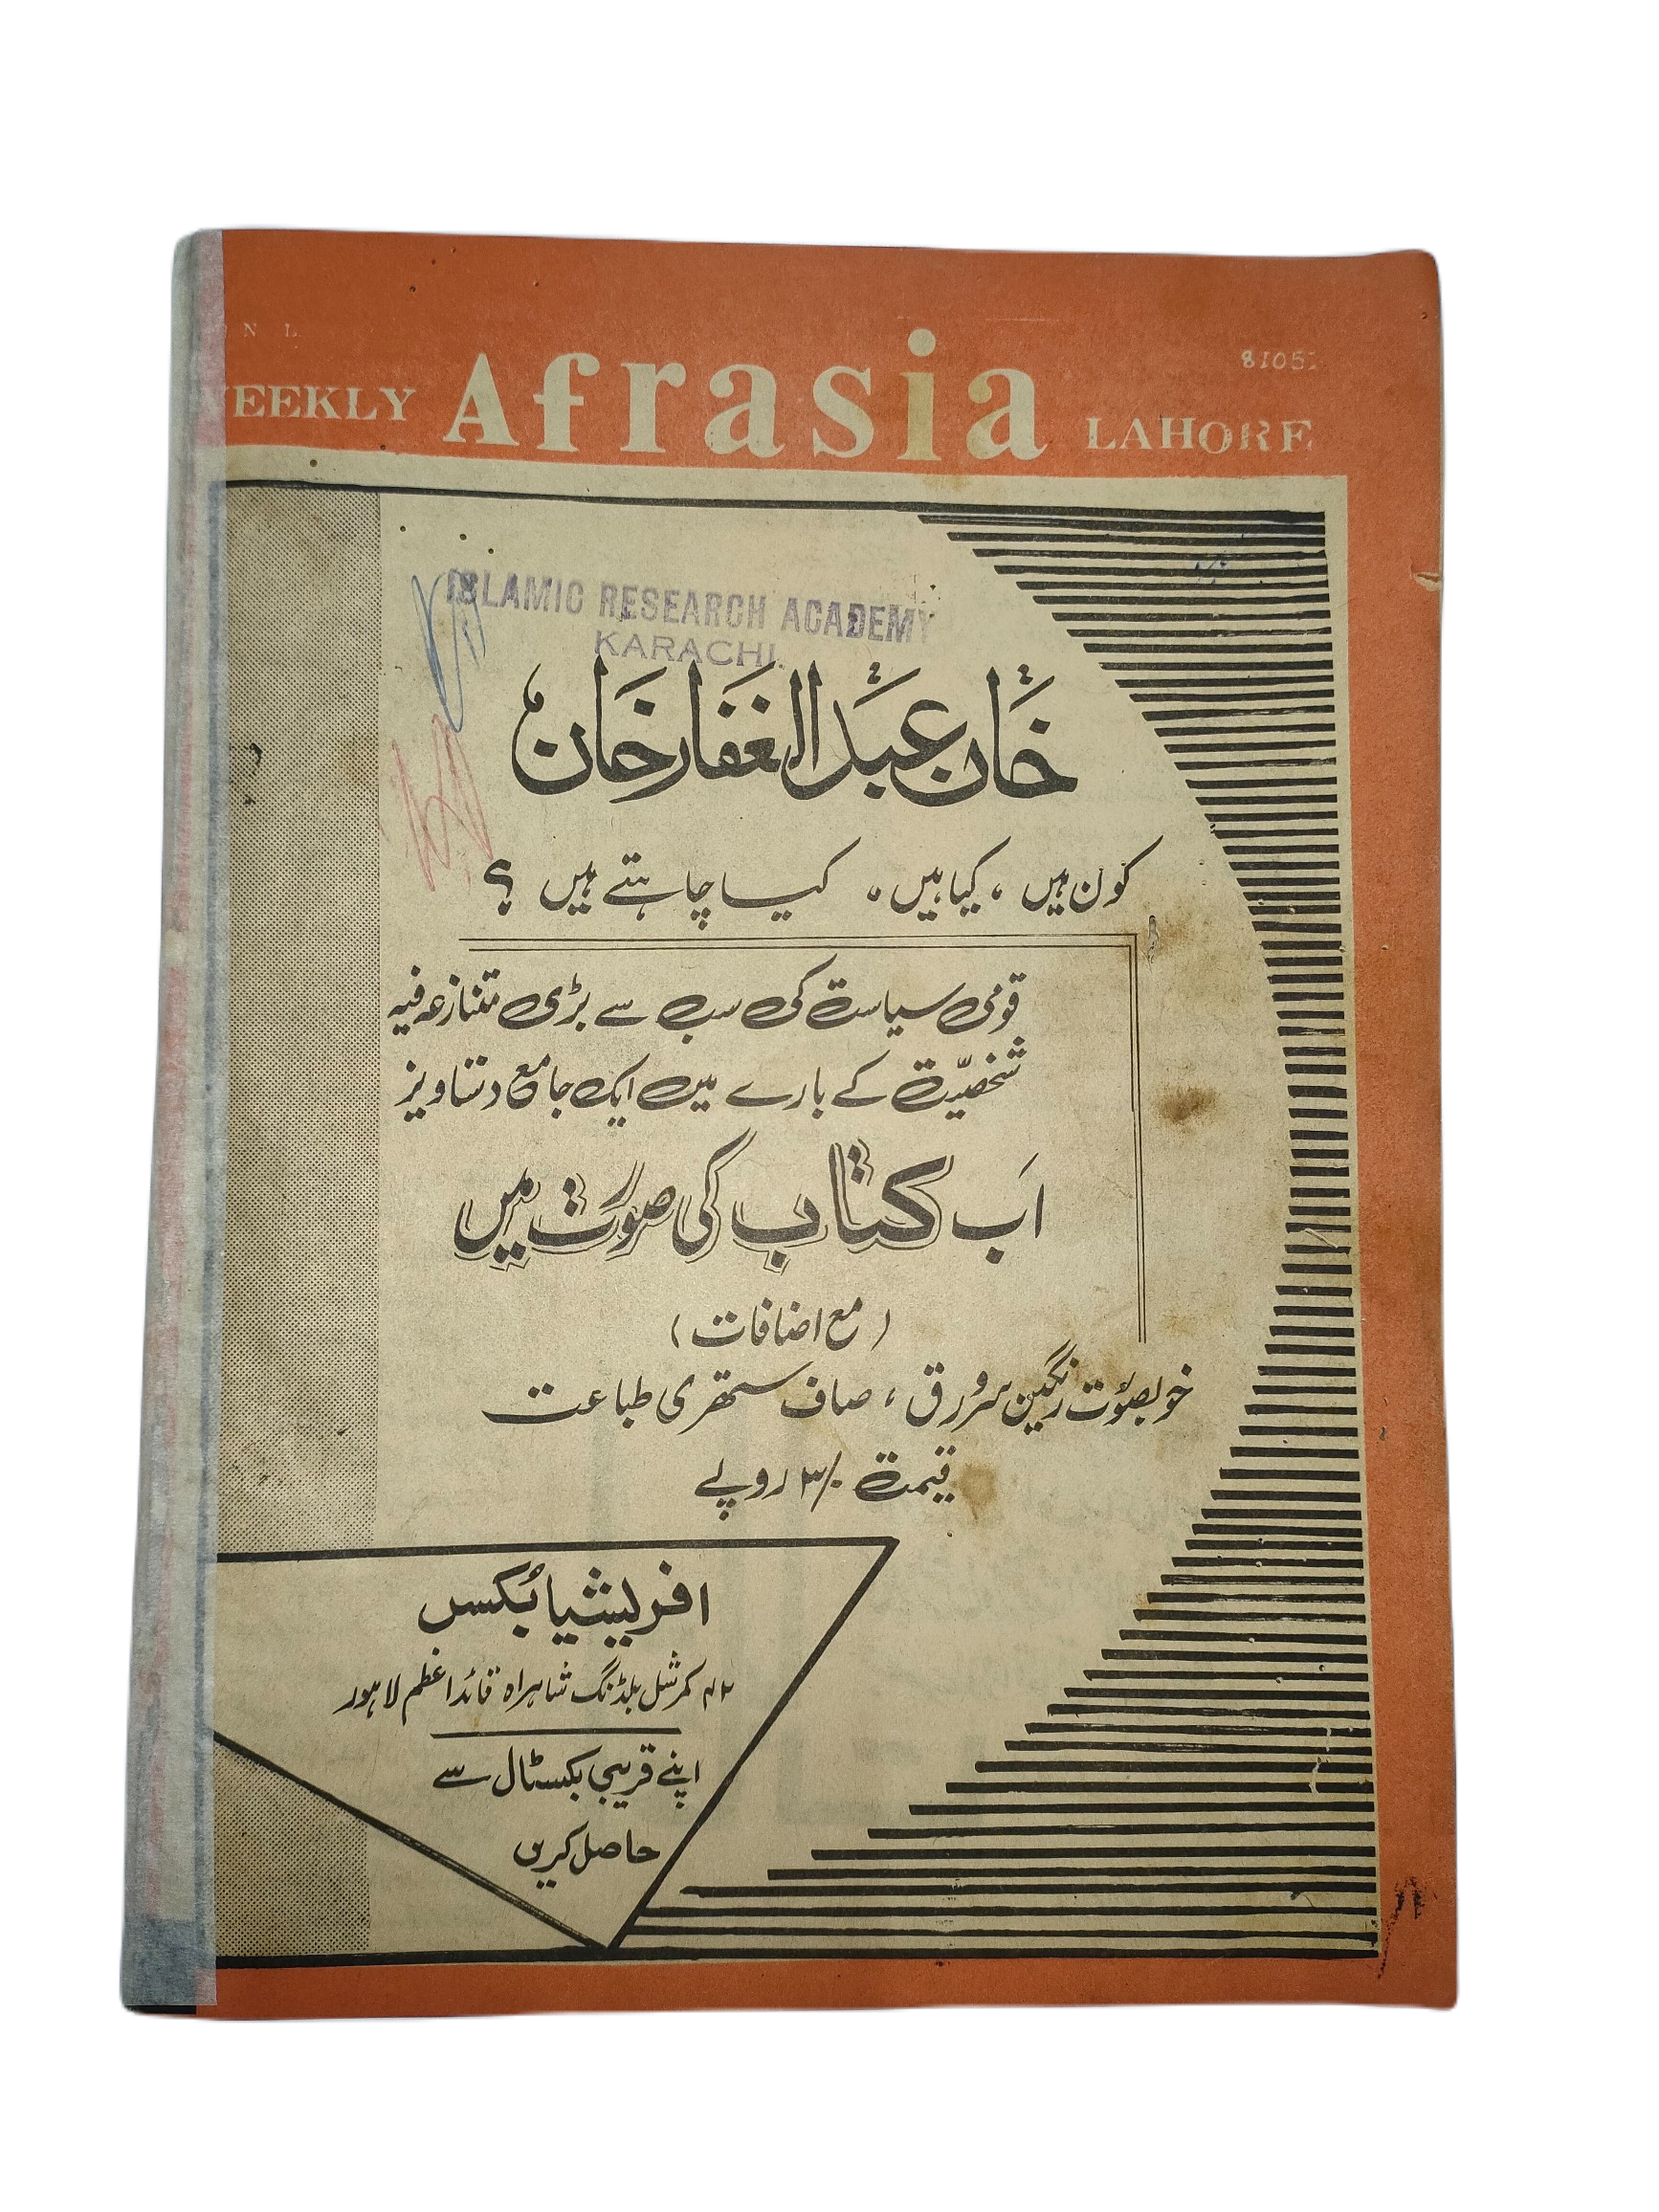 N L
81051
WEEKLY Afrasia LAHORE
ISLAMIC RESEARCH ACADEMY
KARACHI.
خان عبدالغفار خان
کون ہیں ، کیا ہیں ، کیا چاہتے ہیں ؟
قومی سیاست کی سب سے بڑی متنازعہ فیہ
شخصیّت کے بارے میں ایک جامع دستاویز
اَب کتاب کی صورت میں
( مع اضافات )
خوبصورت رنگین سرورق ، صاف ستھری طباعت
قیمت ۳/۰ روپے
افریشیا بُکس
کمرشل بلڈنگ شاہراہ قائداعظم لاہور
اپنے قریبی بکسٹال سے
حاصل کریں